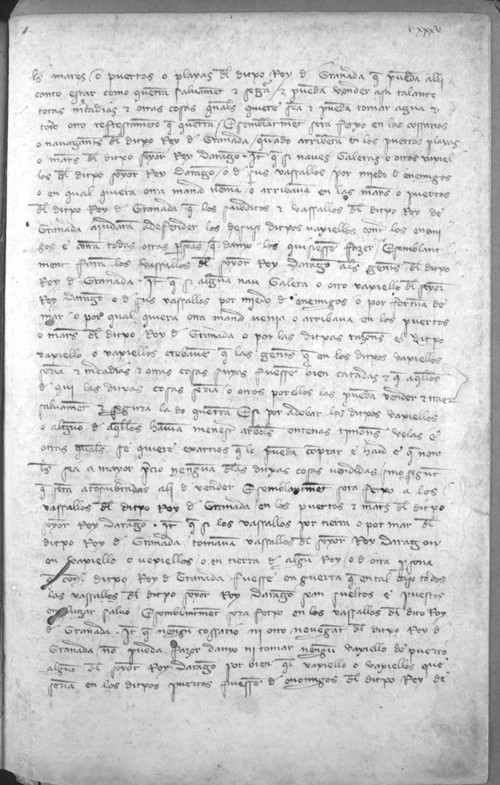 cxxxv
los mares / o puertos o playas del dicho Rey d Granada q̃ pueda alli
tanto estar como querra saluament & segur / & pueda vender a su talante
totas mercadias & otras cosas quals quiere sera & pueda tomar agua &
todo otro refrescamento q̃ querra / Esemblantment sera fecho en los cossarios
o nauegantes del dicho Rey d Granada / quãdo arribera en los puertos playas
o mars del dicho senyor Rey Darago · Itẽ q̃ si naues Galeras o otros vaxiel
los del dicho senyor Rey Darago / o d sus vassallos por miedo d enemigos
o en qual quiera otra manera venia o arribaua en las mars o puertos
del dicho Rey d Granada q̃ los subditos & vassallos del dicho Rey de
Granada ajudara a defender los desus dichos vaxiellos contra los enem
igos & contra todas otras psonas q̃ danyo los quisiesse fazer Esemblant
ment faran los vassallos del senyor Rey Darago als gents del dicho
Rey d Granada · Itẽ q̃ si alguna nau Galera o otro vaxiello del senyor
Rey Darago o d sus vassallos por miedo d enemigos o por fortuna de
mar o por qual quiera otra manera venia o arribaua en los puertos
o mars del dicho Rey d Granada o por las dichas rahones el dicho
vaxiello o vaxiellos trobaua q̃ las gents q̃ en los dichos vaxiellos
seria & mercadias & otras cosas suyas fuesse bien catadas & q̃ aqllos
d qui las dichas cosas seria o otros por ellos las pueda vender & traer
saluament & segura la do querra Esi por adobar los dichos vaxiellos
o alguno d aqllos hauia menester arbols entenas timons velas &
otras quals se quiere exarcies q̃ lo pueda comprar & hauer & q̃ non
les sea a mayor precio nenguna dlas dichas cosas vendidas sino segunt
q̃ sera acostumbradas alli d vender Esemblantment sera fecho a los
vassallos del dicho Rey d Granada en los puertos & mars del dicho
senyor Rey Darago · Itẽ q̃ si los vassallos por tierra o por mar del
dicho Rey d Granada tomaua vassallos del senyor Rey Daragon
en vaxiello o vaxiellos o en tierra d algun Rey / o d otra psona
q̃ con el dicho Rey d Granada fuesse en guerra q̃ en tal caso todos
los vassallos del dicho senyor Rey Darago sean sueltos & puestos
en lugar saluo Esemblantment sera fecho en los vassallos del dicho Rey
d Granada · Itẽ q̃ nengu cossario ni otro nauegant del dicho Rey d
Granada no pueda fazer danyo ni tomar nengu vaxiello de puerto
alguno del senyor Rey Darago por bien q̃ vaxiello o vaxiellos que
seria en los dichos puertos fuesse d enemigos del dicho Rey de